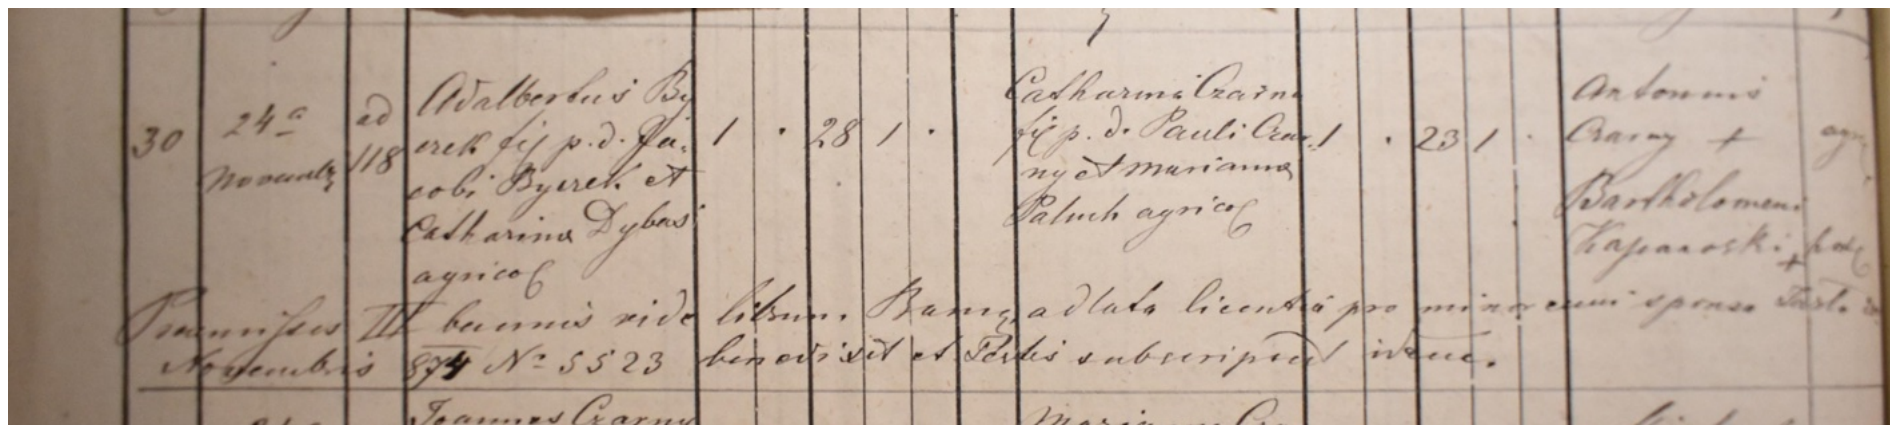 30 24ª Novembr ad 118 Adalbertus By
erek fil p. d. Ja-
cobi Byerek et
Catharina Dybas
agricol
1 · 28 1 ·
Catharina Czarna
fil p. d. Pauli Czar-
ny et Marianna
Paluch agricol
1 · 23 1 ·
Antonius
Czarny + agri
Bartholomeus
Kaparoski +
Praemissis III bannis vide librum. Bann, adlata licentia pro minorenni sponsa Trib
Novembris 874 Nº 5523 benedixit et Testis subscripsit idem.
Joannes Czarny